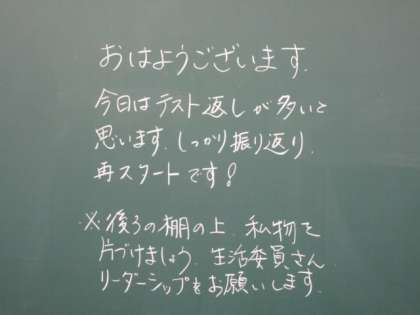 おはようございます.
今日はテスト返しが多いと
思います.しっかり振り返り.
再スタートです!
※後ろの棚の上.私物を
片づけましょう.生活委員さん
リーダーシップをお願いします.